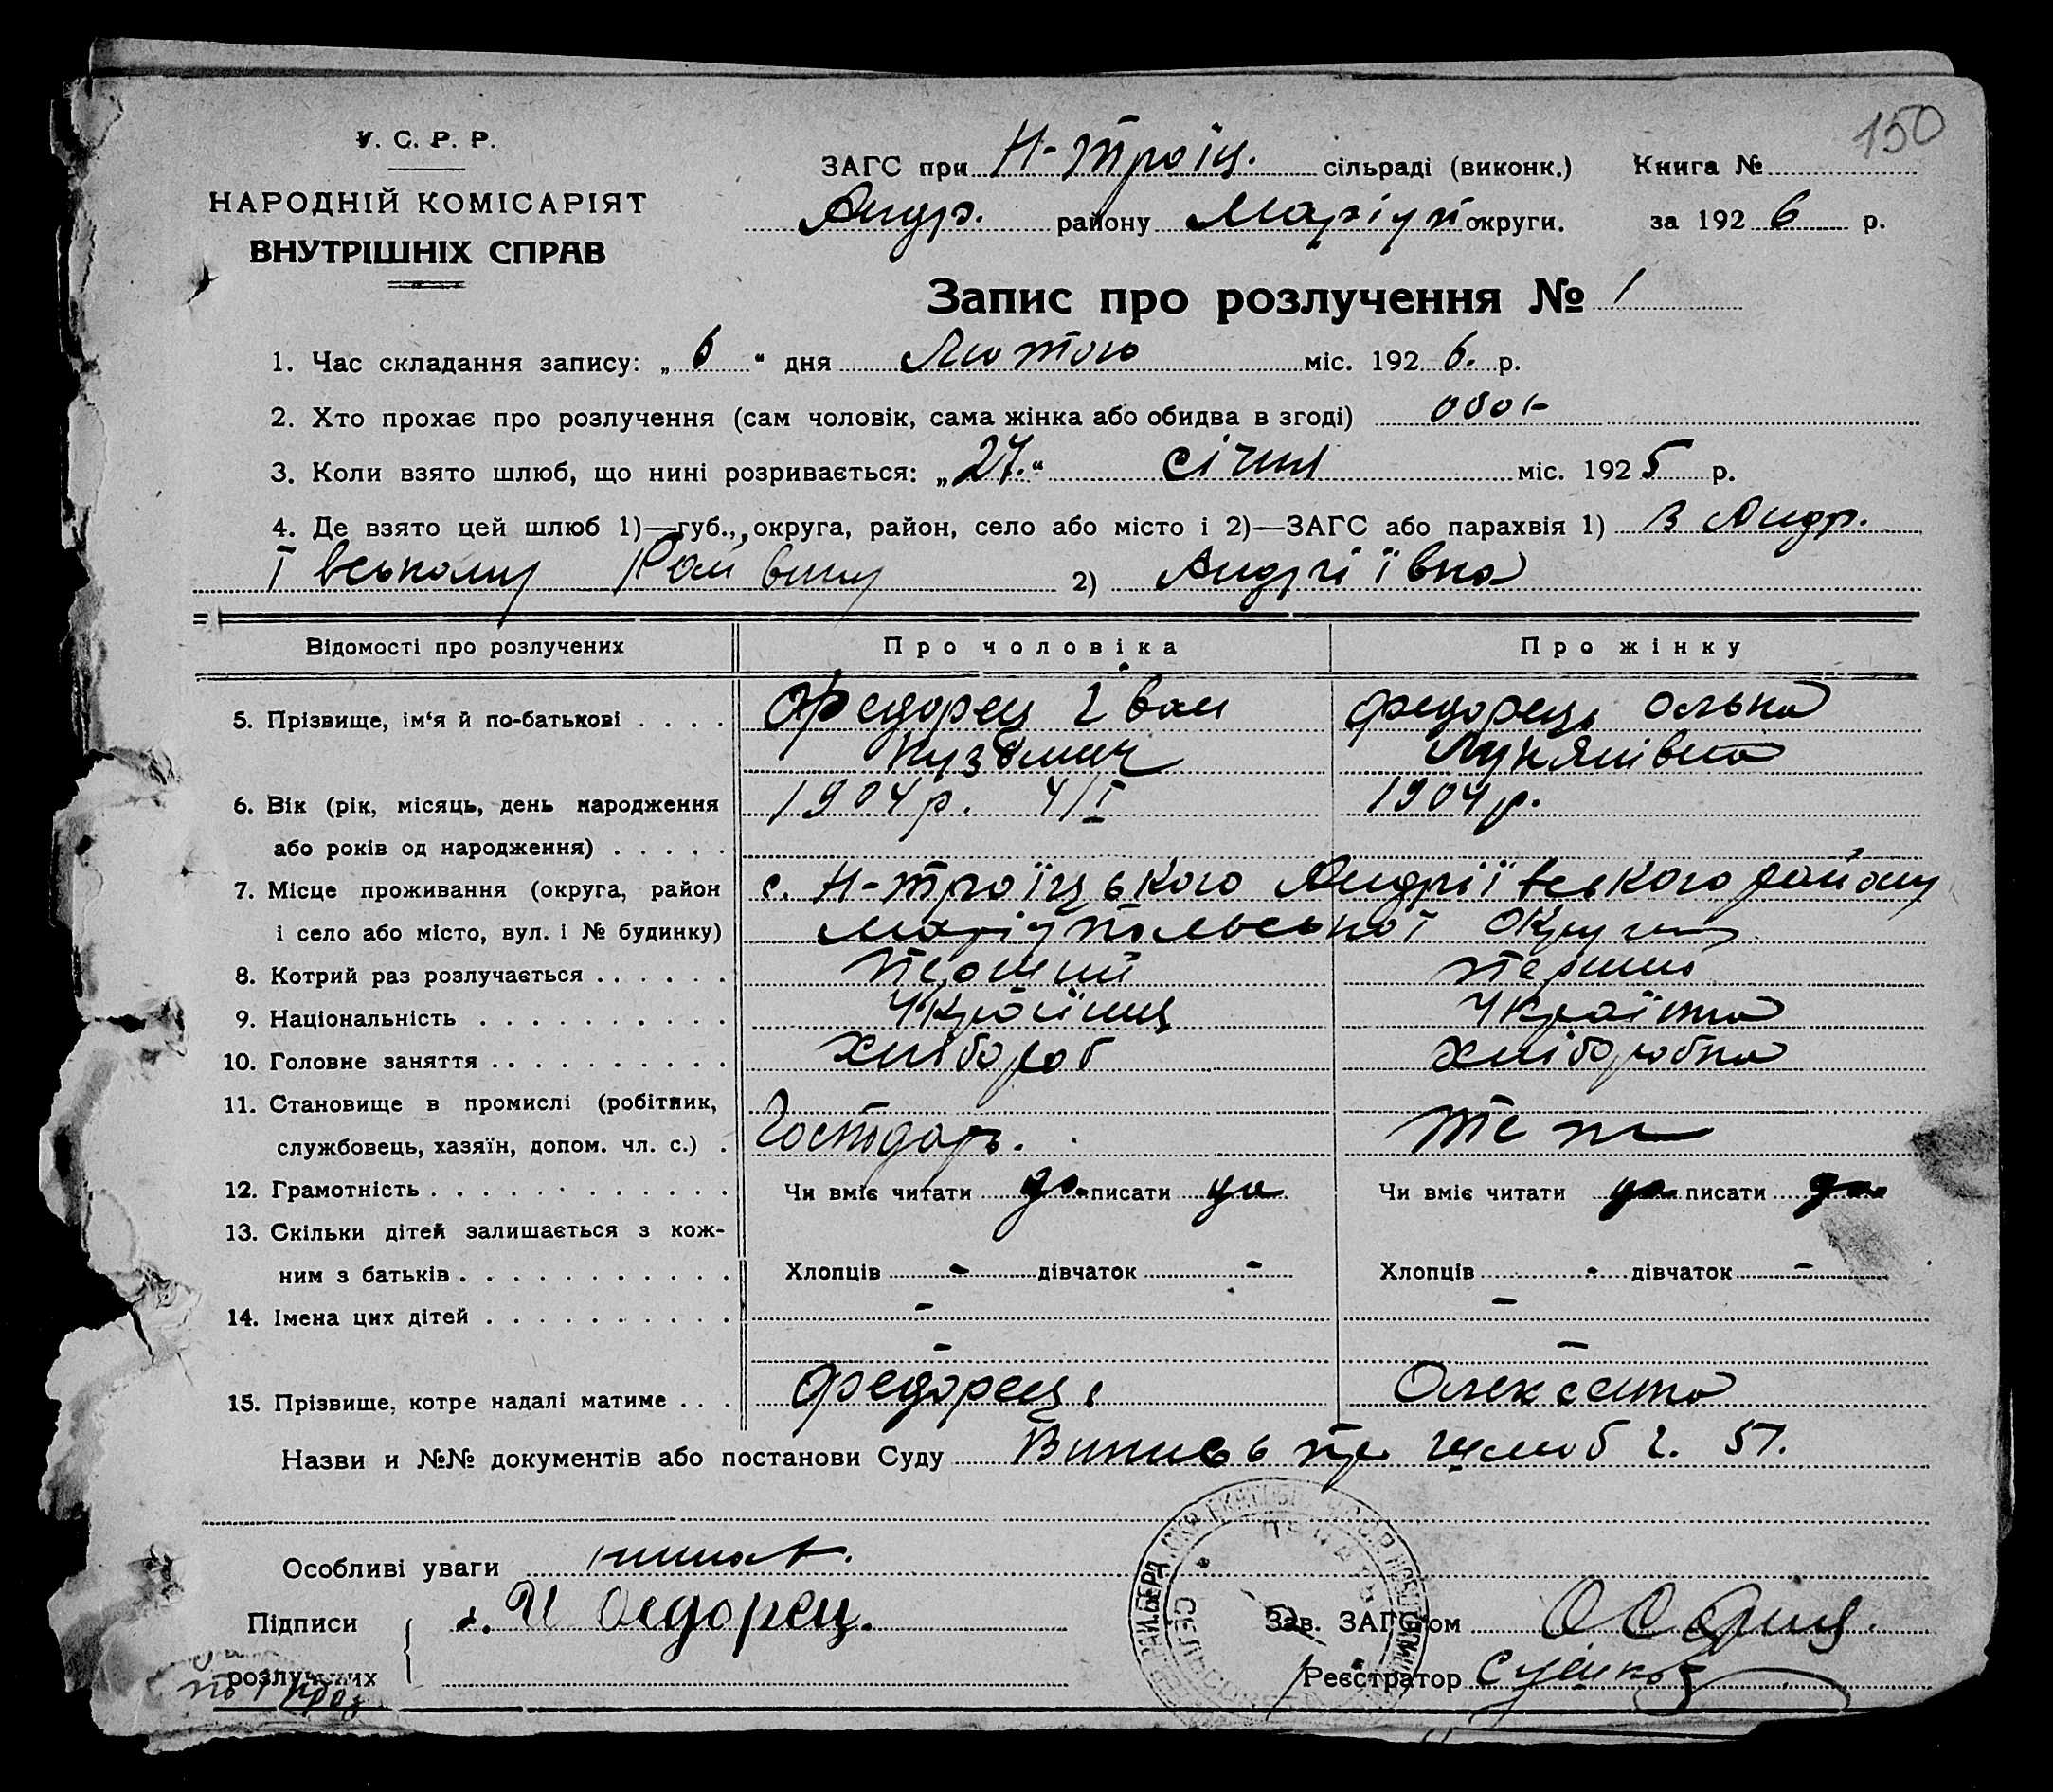 150
У. С. Р. Р.
НАРОДНІЙ КОМІСАРІЯТ
ВНУТРІШНІХ СПРАВ
ЗАГС при Н-Троіц. сільраді (виконк.) Книга №
Андр. району Маріуп округи. за 1926 р.
Запис про розлучення № 1
1. Час складання запису: „6“ дня Лютого міс. 1926. р.
2. Хто прохає про розлучення (сам чоловік, сама жінка або обидва в згоді)
3. Коли взято шлюб, що нині розривається: „27.“ січня міс. 1925 р.
4. Де взято цей шлюб 1)—губ., округа, район, село або місто і 2)—ЗАГС або парахвія 1) в Андр.
ївському Рай 2) Андріївна
Відомості про розлучених Про чоловіка Про жінку
5. Прізвище, ім‘я й по-батькові . . . . Федорец Іван Федорець Ольна
Кузьмич Лукянівна
6. Вік (рік, місяць, день народження 1904 р. 4/I 1904 р.
або років од народження) . . . . .
7. Місце проживання (округа, район с. Н-Троїцького Андріївського району
і село або місто, вул. і № будинку) Маріупольської Округи
8. Котрий раз розлучається . . . . . . Перший Перший
9. Національність . . . . . . . . . . Українец Українка
10. Головне заняття . . . . . . . . . . Хлібороб Хліборобка
11. Становище в промислі (робітник,
службовець, хазяїн, допом. чл. с.) . Господарь.
12. Грамотність . . . . . . . . . . . . Чи вміє читати да писати да Чи вміє читати да писати да
13. Скільки дітей залишається з кож-
ним з батьків . . . . . . . . . . . Хлопців - дівчаток - Хлопців - дівчаток -
14. Імена цих дітей . . . . . . . . . . - -
- -
15. Прізвище, котре надалі матиме . . . Федорець
Назви и №№ документів або постанови Суду Випись про шлюб ч. 51.
Особливі уваги
Підписи И Федорец. Зав. ЗАГС‘ом
розлучених Реєстратор